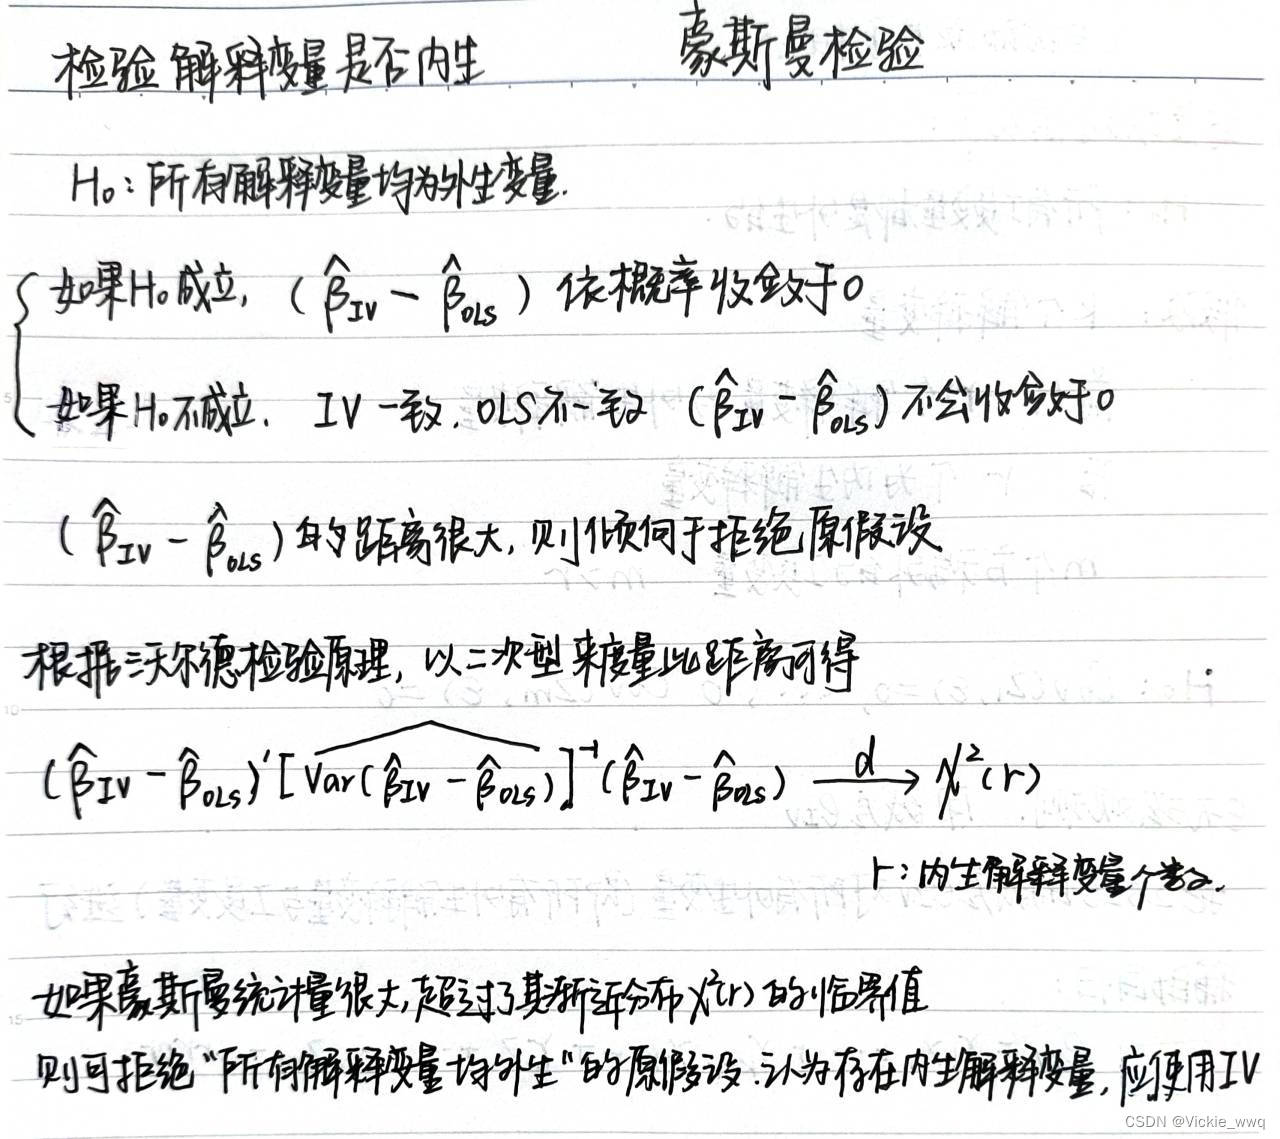 检验解释变量是否内生 豪斯曼检验
H₀：所有解释变量均为外生变量.
如果H₀成立, (β̂_IV - β̂_OLS) 依概率收敛于0
如果H₀不成立. IV一致. OLS不一致 (β̂_IV - β̂_OLS) 不会收敛于0
(β̂_IV - β̂_OLS) 的距离很大, 则倾向于拒绝原假设
根据沃尔德检验原理, 以二次型来度量此距离可得
(β̂_IV - β̂_OLS)' [Var(β̂_IV - β̂_OLS)]^-1 (β̂_IV - β̂_OLS) →d χ²(r)
r：内生解释变量个数.
如果豪斯曼统计量很大, 超过了其渐近分布χ²(r)的临界值
则可拒绝"所有解释变量均外生"的原假设. 认为存在内生解释变量, 应使用IV
CSDN @Vickie_wwq